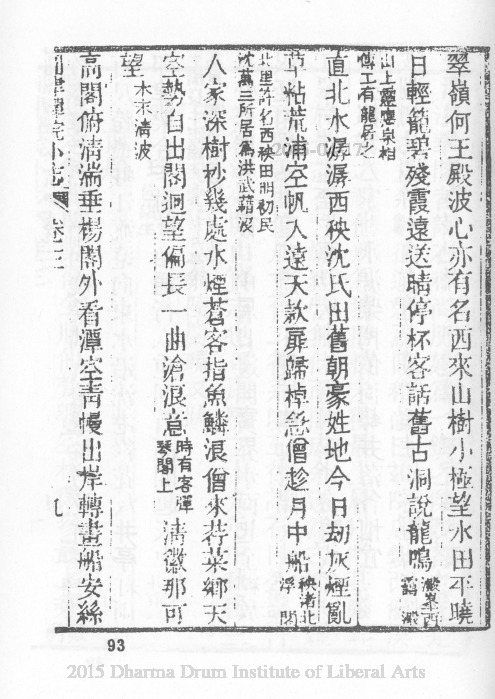 翠嶺何王殿波心亦有名西來山樹小極望水田平曉
日輕籠碧殘霞遠送晴停杯客話舊古洞說龍鳴
山上靈應泉相
傳工有龍居之
直北水潺潺西秧沈氏田舊朝豪姓地今日劫灰煙亂
草粘荒浦空帆入遠天款扉歸棹急僧趁月中船
北里許名西秧田明初民
沈萬三所居為洪武藉沒
人家深樹杪幾處水煙蒼客指魚鱗浪僧來荇菜鄉天
空勢自出閣迥望偏長一曲滄浪意 時有客彈琴閣上 清徽那可
望 木末清波
高閣俯清湍垂楊閣外看潭空青幔出岸轉畫船安絲
院小志 卷三 九
93
2015 Dharma Drum Institute of Liberal Arts